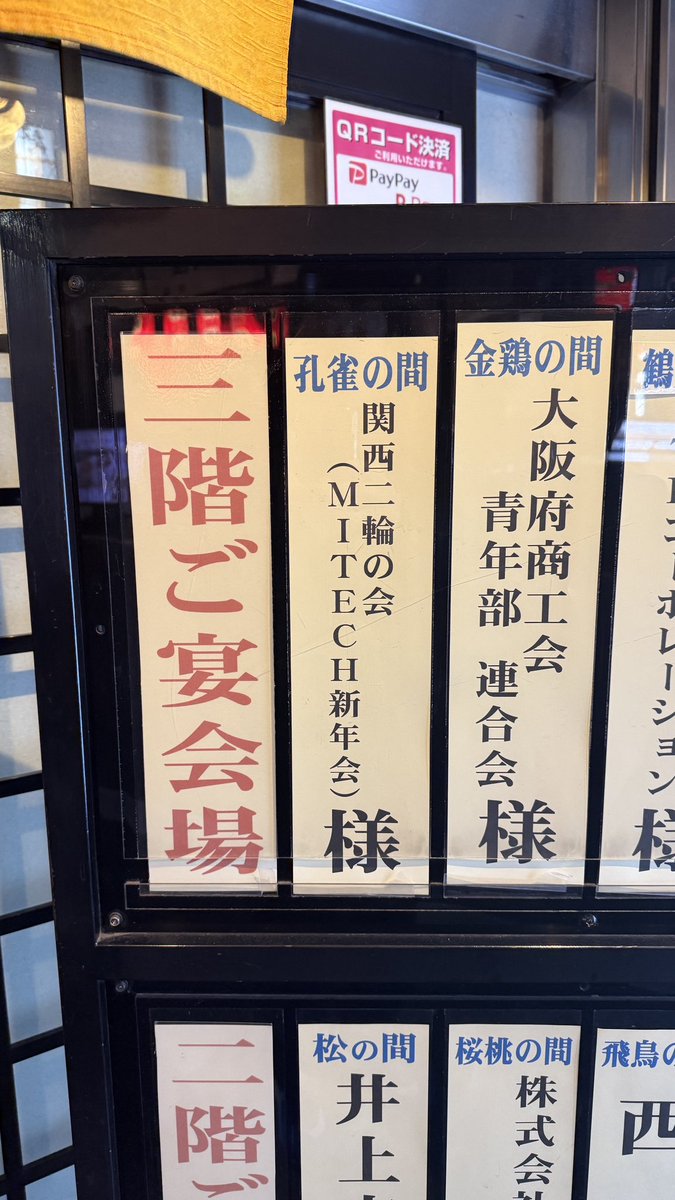 QRコード決済
ご利用いただけます。
PayPay
三階ご宴会場
孔雀の間
関西二輪の会
(MITECH新年会)
様
金鶏の間
大阪府商工会
青年部 連合会
様
鶴
コーポレーション
様
二階ご
松の間
井上
桜桃の間
株式会社
飛鳥の
西